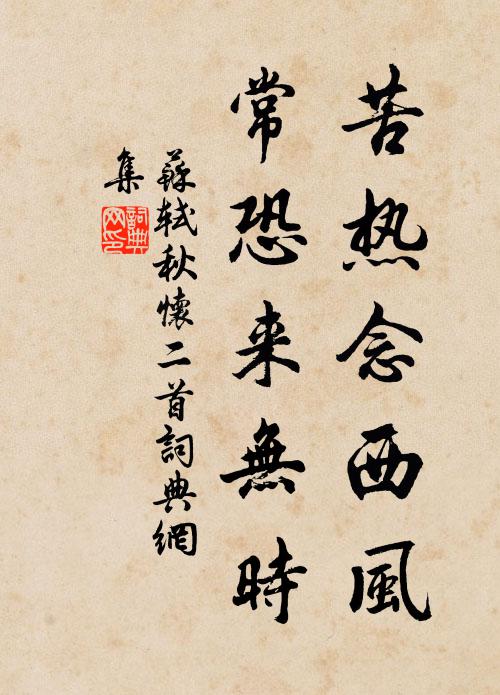 苦热念西風
常恐来無時
蘇軾秋懷二首詞典網
集
詞典网印